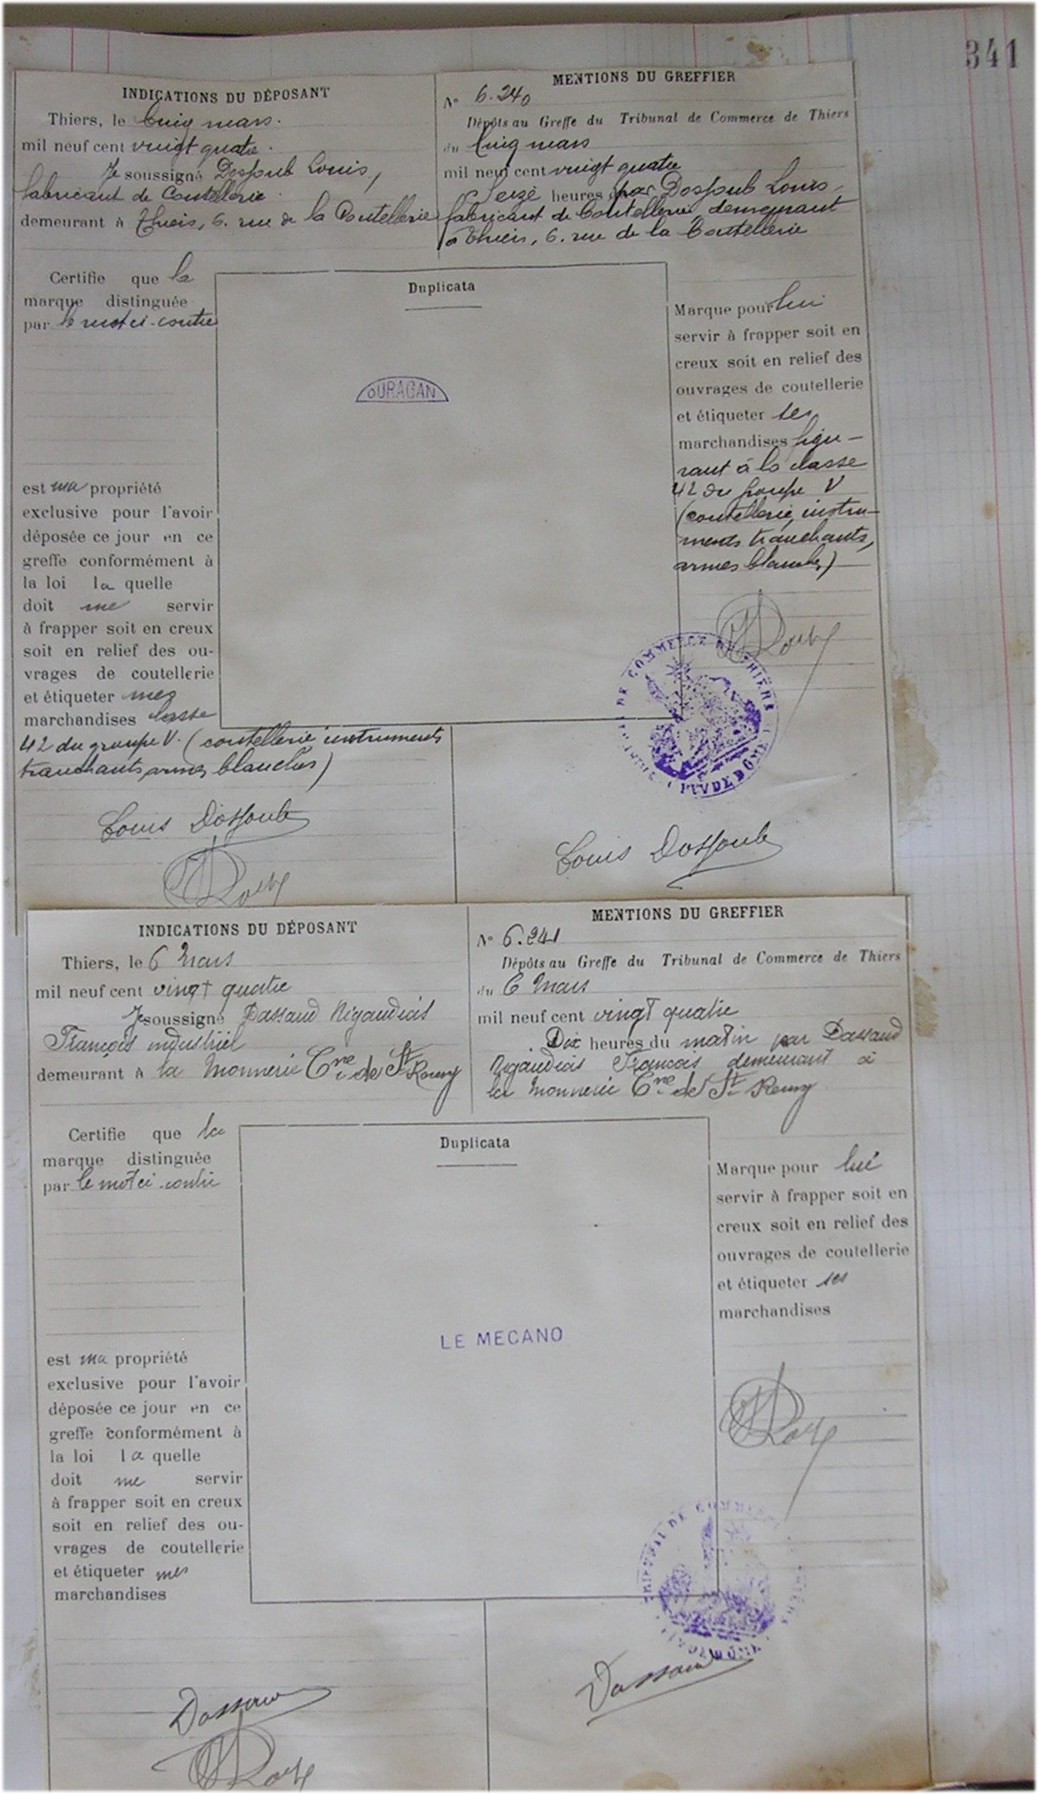 341
INDICATIONS DU DÉPOSANT
Thiers, le Cinq mars.
mil neuf cent vingt quatre.
Je soussigné Dosjoub Louis,
fabricant de Coutellerie
demeurant à Thiers, 6. rue de la Coutellerie
Certifie que la
marque distinguée
par le mot ci-contre
est ma propriété
exclusive pour l'avoir
déposée ce jour en ce
greffe conformément à
la loi la quelle
doit me servir
à frapper soit en creux
soit en relief des ou-
vrages de coutellerie
et étiqueter mes
marchandises classe
42 du groupe V. (coutellerie instruments
tranchants, armes blanches)
Duplicata
OURAGAN
MENTIONS DU GREFFIER
N° 6.240
Dépôts au Greffe du Tribunal de Commerce de Thiers
du Cinq mars
mil neuf cent vingt quatre
Seize heures par Dosjoub Louis
fabricant de Coutellerie demeurant
à Thiers, 6. rue de la Coutellerie
Marque pour lui
servir à frapper soit en
creux soit en relief des
ouvrages de coutellerie
et étiqueter ses
marchandises figu-
rant à la classe
42 du groupe V
(coutellerie, instru-
ments tranchants,
armes blanches)
DE COMMERCE DE THIERS
PUY DE DÔME
Louis Dosjoub
Louis Dosjoub
INDICATIONS DU DÉPOSANT
Thiers, le 6 Mars
mil neuf cent vingt quatre
Je soussigné Dassaud Rigaudias
François industriel
demeurant à la Monnerie Cne de St Remy
Certifie que la
marque distinguée
par le mot ci-contre
est ma propriété
exclusive pour l'avoir
déposée ce jour en ce
greffe conformément à
la loi la quelle
doit me servir
à frapper soit en creux
soit en relief des ou-
vrages de coutellerie
et étiqueter mes
marchandises
Duplicata
LE MECANO
MENTIONS DU GREFFIER
N° 6.241
Dépôts au Greffe du Tribunal de Commerce de Thiers
du 6 Mars
mil neuf cent vingt quatre
Dix heures du matin par Dassaud
Rigaudias François demeurant à
la Monnerie Cne de St Remy
Marque pour lui
servir à frapper soit en
creux soit en relief des
ouvrages de coutellerie
et étiqueter ses
marchandises
TRIBUNAL DE COMMERCE
Dassaud
Dassaud